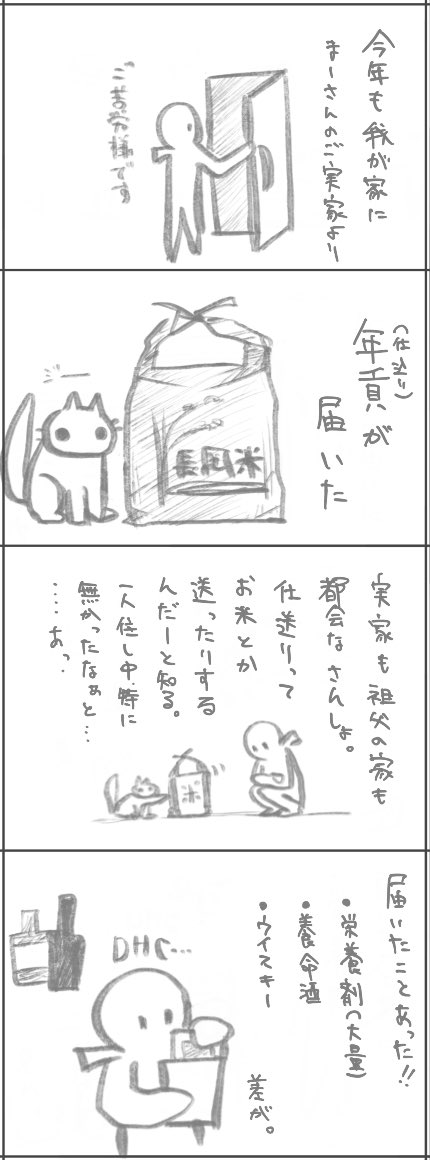 今年も我が家に
まーさんのご実家より
ご苦労様です
(仕送り)
年貢が
届いた
ジー
長岡米
実家も祖父の家も
都会なさんしょ。
仕送りって
お米とか
送ったりする
んだーと知る。
一人住し中、特に
無かったなぁと…
……あっ.
米
届いたことあった!!
・栄養剤(大量)
・養命酒
・ウイスキー
DHC…
差が。